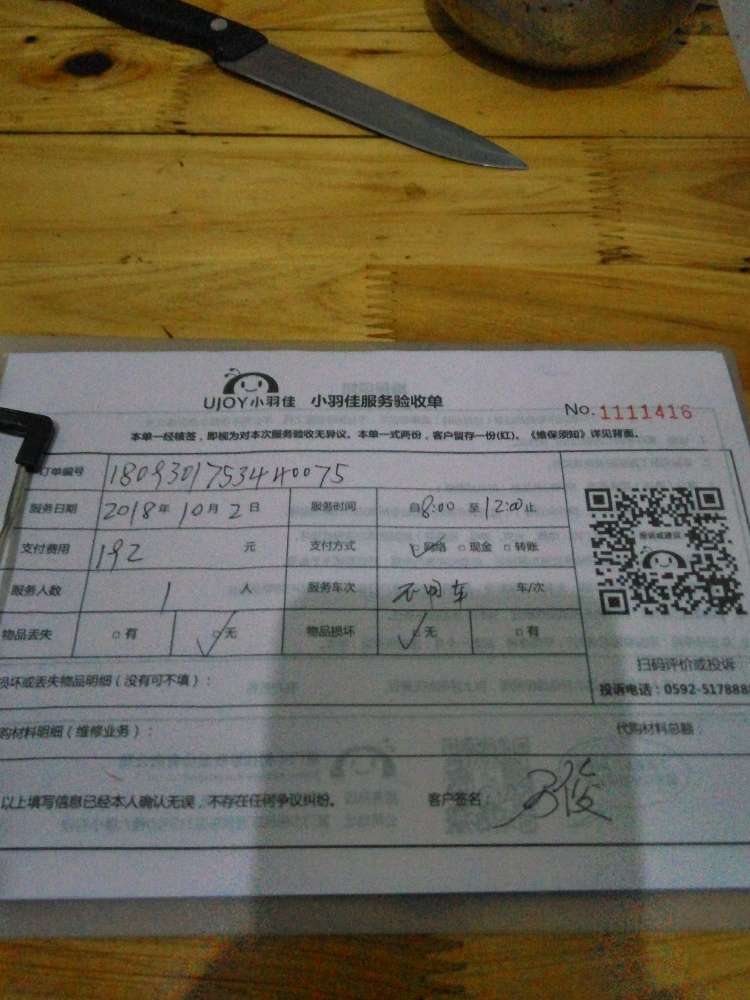 UJOY小羽佳 小羽佳服务验收单
No. 1111416
本单一经核签，即视为对本次服务验收无异议。本单一式两份，客户留存一份(红)。《维保须知》详见背面。
订单编号 18093017534440075
服务日期 2018年10月2日 服务时间 自8:00至12:00止
支付费用 192元 支付方式 网络 现金 转账
服务人数 1人 服务车次 不用车 车/次
物品丢失 有 无 物品损坏 无 有
扫码评价或投诉
损坏或丢失物品明细（没有可不填）：
投诉电话：0592-517888
购材料明细（维修业务）： 代购材料总额：
以上填写信息已经本人确认无误，不存在任何争议纠纷。 客户签名：